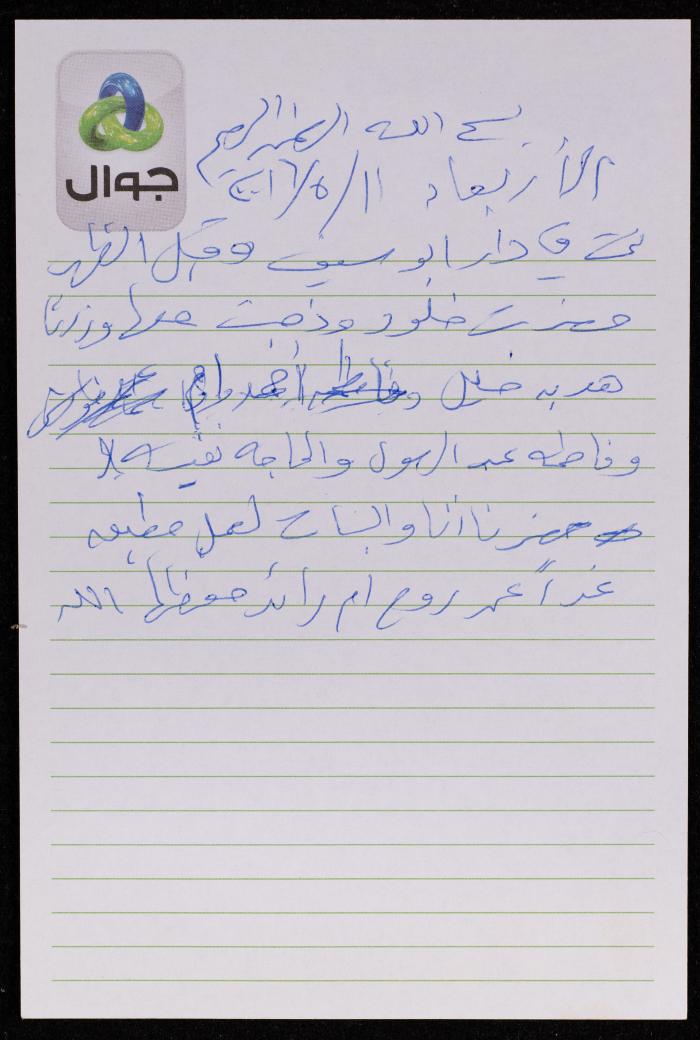 جوال
بسم الله الرحمن الرحيم
الأربعاء ١١/٥/٢٠١٦
نمت في دار ابو سيف وقبل الظهر
حضرت خلود وذهبت معها وزرنا
هديه خليل
وفاطمه عبد الرسول والحاجه نفيسه
حضرنا أنا والبنات لعمل مطبعه
غداً عمر روح ام رائد حفظها الله